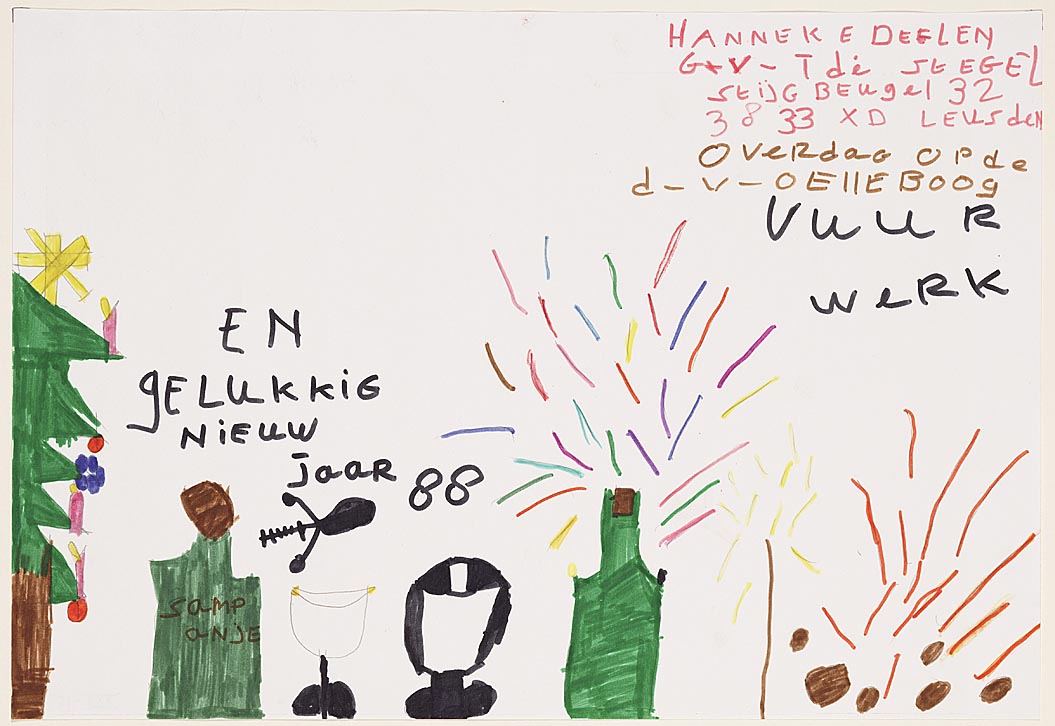 HANNEKE DEELEN
G+V-T dè STEGEL
StijGBEugel 32
3833 XD LEUSdEN
OVERdAG OP de
d-V-OEllEBOOg
VUUR
WeRK
EN
gELUKKiG
NiEUW
jaaR 88
samp
anjE